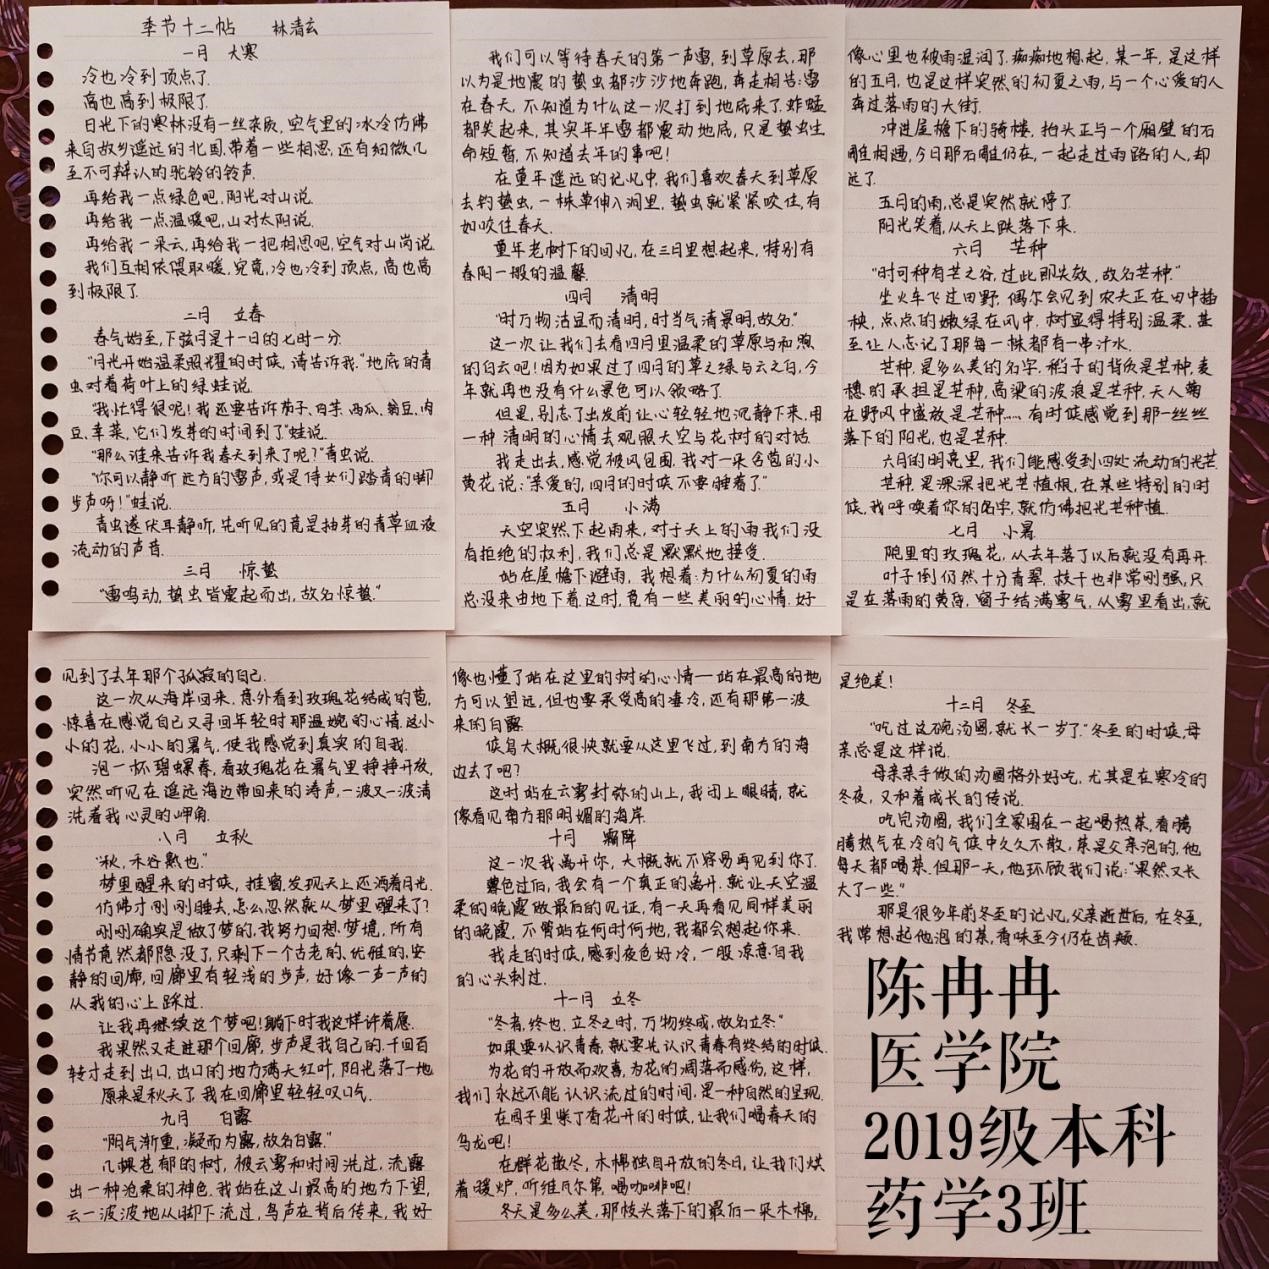 季节十二帖 林清玄
一月 大寒
冷也冷到顶点了.
高也高到极限了.
日光下的寒林没有一丝杂质,空气里的冰冷仿佛
来自故乡遥远的北国,带着一些相思,还有细微几
至不可辩认的驼铃的铃声.
再给我一点绿色吧,阳光对山说.
再给我一点温暖吧,山对太阳说.
再给我一朵云,再给我一把相思吧,空气对山岗说.
我们互相依偎取暖,究竟,冷也冷到顶点,高也高
到极限了.
二月 立春
春气始至,下弦月是十一日的七时一分.
"月光开始温柔照耀的时候,请告诉我."地底的青
虫对着荷叶上的绿蛙说.
"我忙得很呢!我还要告诉茄子、白芋、西瓜、豌豆、肉
豆、苇菜,它们发芽的时间到了"蛙说.
"那么谁来告诉我春天到来了呢?"青虫说.
"你可以静听远方的雷声,或是侍女们踏青的脚
步声呀!"蛙说.
青虫遂伏耳静听,先听见的竟是抽芽的青草血液
流动的声音.
三月 惊蛰
"雷鸣动,蛰虫皆震起而出,故名惊蛰."
我们可以等待春天的第一声雷,到草原去,那
以为是地震的蛰虫都沙沙地奔跑,奔走相告:雷
在春天,不知道为什么这一次打到地底来了.蚱蜢
都笑起来,其实年年雷都震动地底,只是蛰虫生
命短暂,不知道去年的事吧!
在童年遥远的记忆中,我们喜欢春天到草原
去钓蛰虫,一株草伸入洞里,蛰虫就紧紧咬住,有
如咬住春天.
童年老树下的回忆,在三月里想起来,特别有
春阳一般的温馨.
四月 清明
"时万物洁显而清明,时当气清景明,故名."
这一次让我们去看四月里温柔的草原与和煦
的白云吧!因为如果过了四月的草之绿与云之白,今
年就再也没有什么景色可以领略了.
但是,别忘了出发前让心轻轻地沉静下来,用
一种清明的心情去观照天空与花树的对话.
我走出去,感觉被风包围.我对一朵含苞的小
黄花说:"亲爱的,四月的时候不要睡着了."
五月 小满
天空突然下起雨来,对于天上的雨我们没
有拒绝的权利.我们总是默默地接受.
站在屋檐下避雨,我想着:为什么初夏的雨
总没来由地下着.这时,竟有一些美丽的心情.好
像心里也被雨湿润了.痴痴地想起,某一年,是这样
的五月,也是这样突然的初夏之雨,与一个心爱的人
奔过落雨的大街.
冲进屋檐下的骑楼,抬头正与一个厢壁的石
雕相遇,今日那石雕仍在,一起走过雨路的人,却
远了.
五月的雨,总是突然就停了.
阳光笑着,从天上跌落下来.
六月 芒种
"时可种有芒之谷,过此即失效,故名芒种."
坐火车飞过田野,偶尔会见到农夫正在田中插
秧,点点的嫩绿在风中,树显得特别温柔.甚
至让人忘记了那每一株都有一串汁水.
芒种,是多么美的名字,稻子的背负是芒种,麦
穗的承担是芒种,高粱的波浪是芒种,天人菊
在野风中盛放是芒种……有时候感觉到那一丝丝
落下的阳光,也是芒种.
六月的明亮里,我们能感受到四处流动的光芒.
芒种,是深深把光芒植根,在某些特别的时
候,我呼唤着你的名字,就仿佛把光芒种植.
七月 小暑
院里的玫瑰花,从去年落了以后就没有再开.
叶子倒仍然十分青翠,枝干也非常刚强,只
是在落雨的黄昏,窗子结满雾气,从雾里看出,就
见到了去年那个孤寂的自己.
这一次从海岸回来,意外看到玫瑰花结成的苞,
惊喜在感觉自己又寻回年轻时那温婉的心情.这小
小的花,小小的暑气,使我感觉到真实的自我.
泡一杯碧螺春,看玫瑰花在暑气里挣挣开放,
突然听见在遥远海边带回来的涛声,一波又一波清
洗着我心灵的岬角.
八月 立秋
"秋,禾谷熟也."
梦里醒来的时候,推窗,发现天上还洒着月光.
仿佛才刚刚睡去,怎么忽然就从梦里醒来了?
刚刚确实是做了梦的,我努力回想梦境,所有
情节竟然都隐没了,只剩下一个古老的、优雅的、安
静的回廊,回廊里有轻浅的步声,好像一声一声的
从我的心上踩过.
让我再继续这个梦吧!躺下时我这样许着愿.
我果然又走进那个回廊,步声是我自己的.千回百
转才走到出口,出口的地方满天红叶,阳光落了一地.
原来是秋天了.我在回廊里轻轻叹口气.
九月 白露
"阴气渐重,凝而为露,故名白露."
几棵苍郁的树,被云雾和时间洗过,流露
出一种沧桑的神色.我站在这山最高的地方下望,
云一波波地从脚下流过,鸟声在背后传来,我好
像也懂了站在这里的树的心情——站在最高的地
方可以望远,但也要承受高的凄冷,还有那第一波
来的白露.
候鸟大概很快就要从这里飞过,到南方的海
边去了吧?
这时站在云雾封弥的山上,我闭上眼睛,就
像看见南方那明媚的海岸.
十月 霜降
这一次我离开你,大概就不容易再见到你了.
暮色过后,我会有一个真正的离开.就让天空温
柔的晚霞做最后的见证,有一天再看见同样美丽
的晚霞,不管站在何时何地,我都会想起你来.
我走的时候,感到夜色好冷,一股凉意自我
的心头刺过.
十一月 立冬
"冬者,终也.立冬之时,万物终成,故名立冬."
如果要认识青春,就要先认识青春有终结的时候.
为花的开放而欢喜,为花的凋落而感伤,这样,
我们永远不能认识流过的时间,是一种自然的呈现.
在园子里紫丁香花开的时候,让我们喝春天的
乌龙吧!
在群花散尽,木棉独自开放的冬日,让我们烘
着暖炉,听维瓦尔第,喝咖啡吧!
冬天是多么美,那枝头落下的最后一朵木棉,
是绝美!
十二月 冬至
"吃过这碗汤圆,就长一岁了."冬至的时候,母
亲总是这样说.
母亲亲手做的汤圆格外好吃.尤其是在寒冷的
冬夜,又和着成长的传说.
吃完汤圆,我们全家围在一起喝热茶,看腾
腾热气在冷的气候中久久不散,茶是父亲泡的.他
每天都喝茶.但那一天,他环顾我们说:"果然又长
大了一些."
那是很多年前冬至的记忆,父亲逝世后,在冬至,
我常想起他泡的茶,香味至今仍在齿颊.
陈冉冉
医学院
2019级本科
药学3班